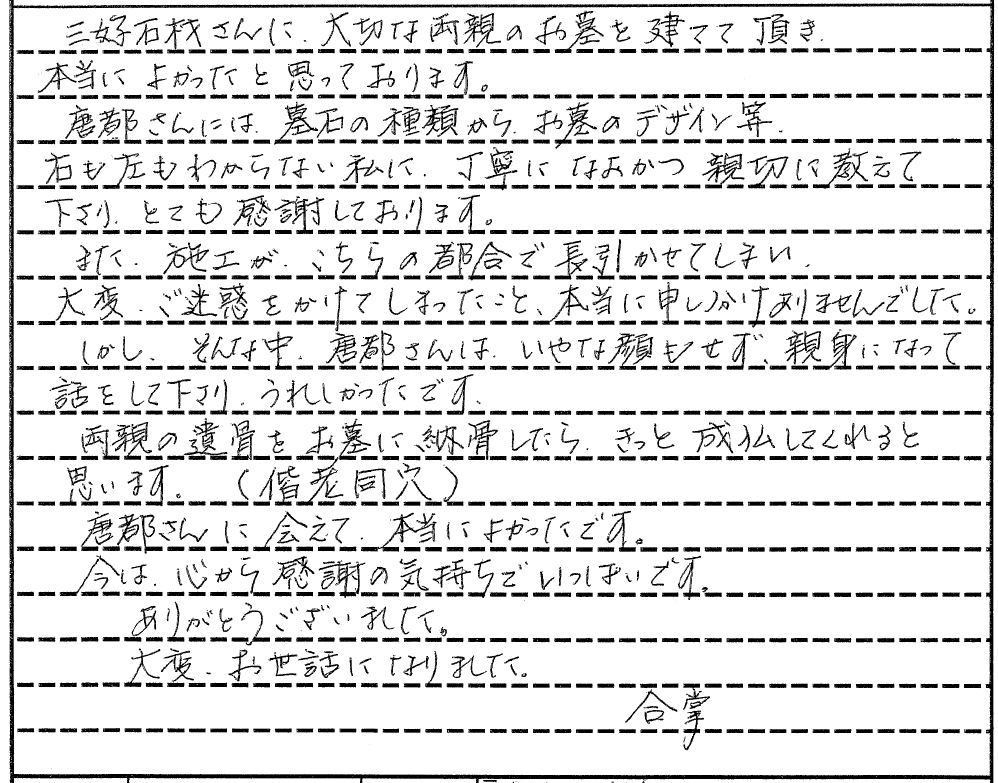 三好石材さんに、大切な両親のお墓を建てて頂き、
本当によかったと思っております。
唐都さんには、墓石の種類から、お墓のデザイン等、
右も左もわからない私に、丁寧になおかつ親切に教えて
下さり、とても感謝しております。
また、施工が、こちらの都合で長引かせてしまい、
大変、ご迷惑をかけてしまったこと、本当に申しわけありませんでした。
しかし、そんな中、唐都さんは、いやな顔もせず、親身になって
話をして下さり、うれしかったです。
両親の遺骨をお墓に納骨したら、きっと成仏してくれると
思います。(偕老同穴)
唐都さんに会えて、本当によかったです。
今は、心から感謝の気持ちでいっぱいです。
ありがとうございました。
大変、お世話になりました。
合掌